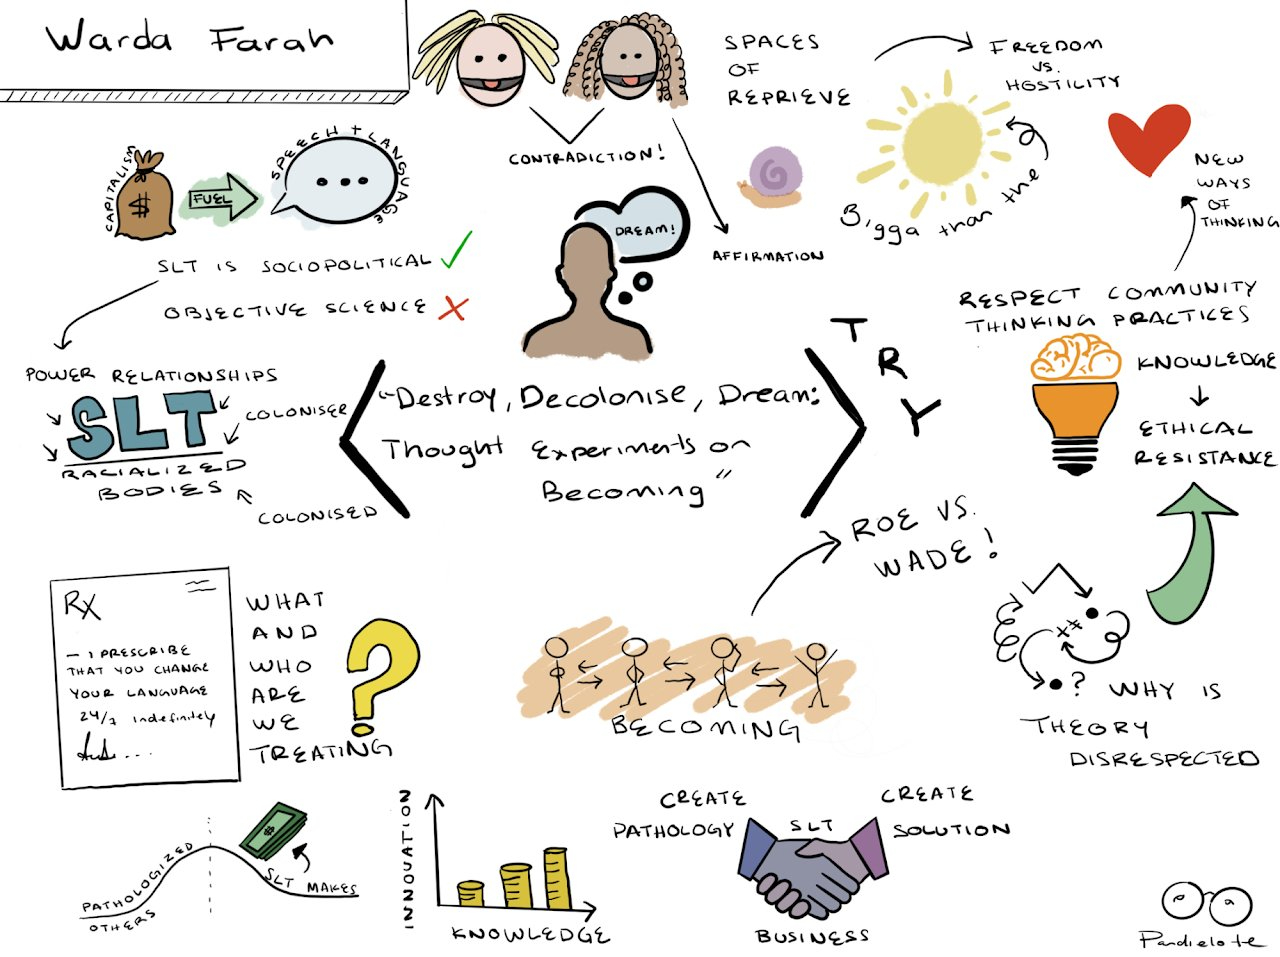 Warda Farah
SPACES
OF
REPRIEVE
FREEDOM
VS.
HOSTILITY
CONTRADICTION!
AFFIRMATION
Bigga than the
NEW
WAYS
OF
THINKING
CAPITALISM
$
FUEL
SPEECH + LANGUAGE
SLT IS SOCIOPOLITICAL
OBJECTIVE SCIENCE
DREAM!
RESPECT COMMUNITY
THINKING PRACTICES
KNOWLEDGE
ETHICAL
RESISTANCE
POWER RELATIONSHIPS
SLT
COLONISER
RACIALIZED
BODIES
COLONISED
"Destroy, Decolonise, Dream:
Thought Experiments on
Becoming"
TRY
ROE VS.
WADE!
RX
- I PRESCRIBE
THAT YOU CHANGE
YOUR LANGUAGE
24/7 indefinitely
WHAT
AND
WHO
ARE
WE
TREATING
?
BECOMING
? WHY IS
THEORY
DISRESPECTED
PATHOLOGIZED
OTHERS
$
SLT MAKES
INNOVATION
KNOWLEDGE
CREATE
PATHOLOGY
SLT
CREATE
SOLUTION
BUSINESS